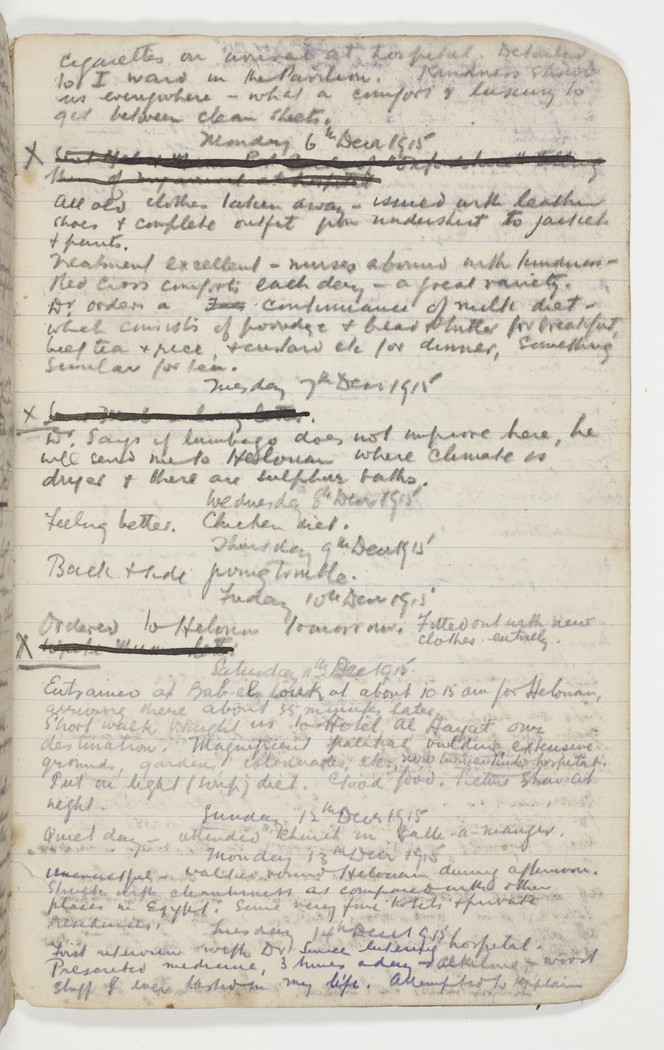 cigarettes on arrival at hospital. Detailed
to I ward in the Pavilion. Kindness shown
us everywhere – what a comfort & luxury to
get between clean sheets.
Monday 6th Decr 1915
X
them of my arrival at hospital
All old clothes taken away – issued with leather
shoes & complete outfit from undershirt to jacket
& pants.
Treatment excellent – nurses abound with kindness –
Red Cross comforts each day – a great variety.
Dr. orders a continuance of milk diet –
which consists of porridge & bread & butter for breakfast,
beef tea & rice, & custard etc for dinner, something
similar for tea.
Tuesday 7th Decr 1915
X
Dr. says if lumbago does not improve here, he
will send me to Helouan where climate is
dryer & there are sulphur baths.
Wednesday 8th Decr 1915
Feeling better. Chicken diet.
Thursday 9th Decr 1915
Back & side giving trouble.
Friday 10th Decr 1915
Ordered to Helouan tomorrow. Fitted out with new
clothes entirely.
X
Saturday 11th Dec 1915
Entrained at Bab-el-Louk at about 10 15 am for Helouan,
arriving there about 35 minutes later.
Short walk brought us to Hotel Al Hayat our
destination. Magnificent palatial building extensive
grounds, gardens, colonnades, etc. now turned into hospital.
Put on light (soup) diet. Good food. Picture Show at
night.
Sunday 12th Decr 1915
Quiet day – attended Church in Salle-a-manger.
Monday 13th Decr 1915
Uneventful – walked round Helouan during afternoon.
Struck with cleanliness as compared with other
places in Egypt. Some very fine hotels & private
residences.
Tuesday 14th Decr 1915
First interview with Dr since entering hospital.
Prescribed medicine, 3 times a day – alkaline – worst
stuff I ever tasted in my life. Attempted to explain